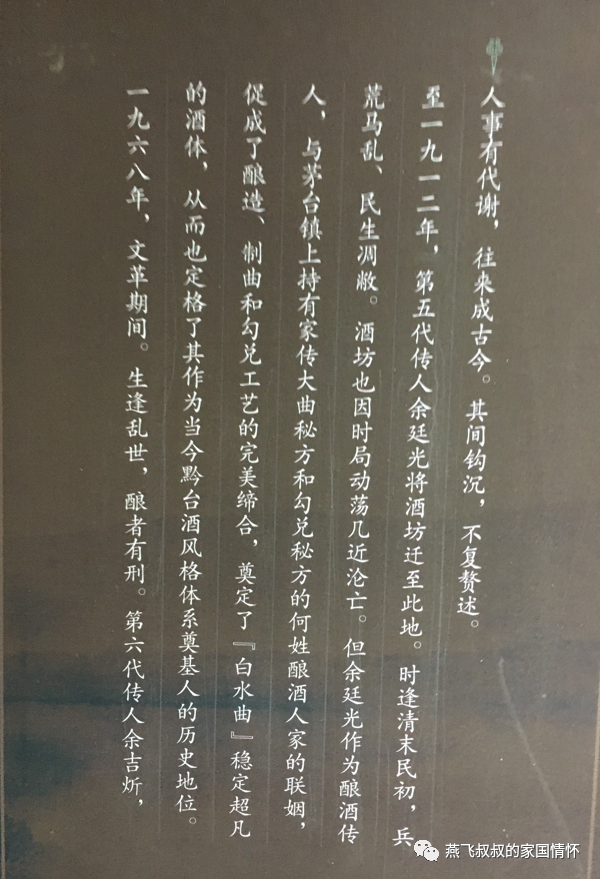 人事有代谢，往来成古今。其间钩沉，不复赘述。
至一九一二年，第五代传人余廷光将酒坊迁至此地。时逢清末民初，兵
荒马乱、民生凋敝。酒坊也因时局动荡几近沦亡。但余廷光作为酿酒传
人，与茅台镇上持有家传大曲秘方和勾兑秘方的何姓酿酒人家的联姻，
促成了酿造、制曲和勾兑工艺的完美缔合，奠定了『白水曲』稳定超凡
的酒体，从而也定格了其作为当今黔台酒风格体系奠基人的历史地位。
一九六八年，文革期间。生逢乱世，酿者有刑。第六代传人余吉炘，
燕飞叔叔的家国情怀